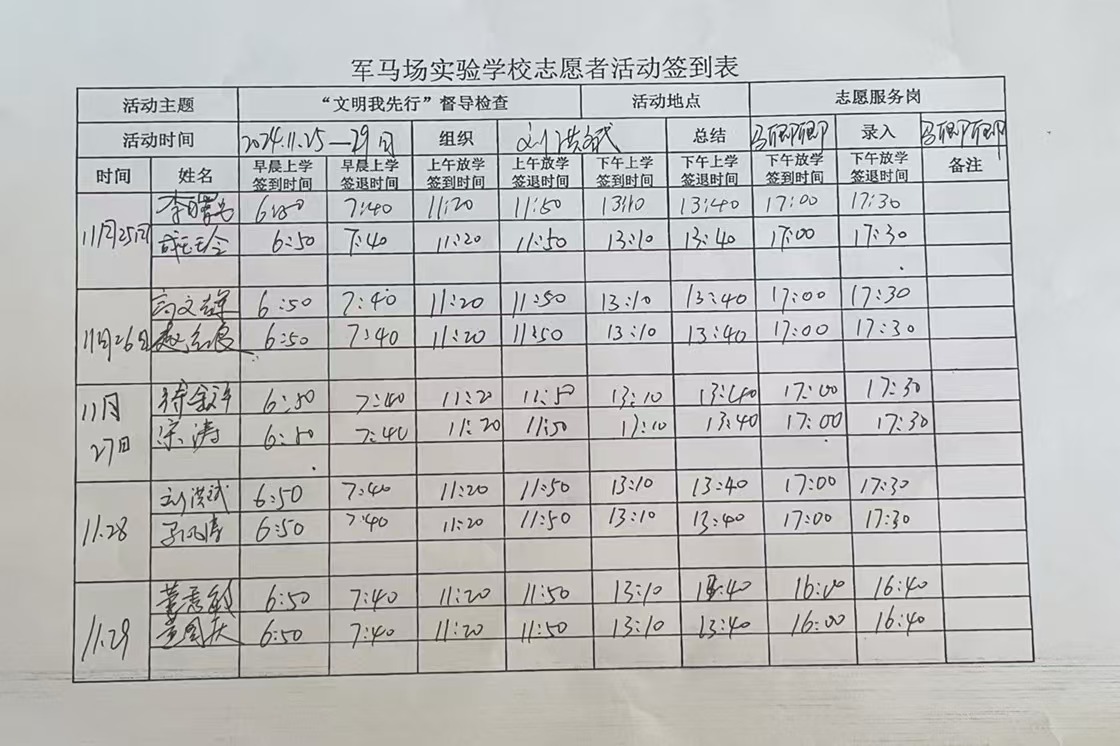 军马场实验学校志愿者活动签到表
活动主题 “文明我先行”督导检查 活动地点 志愿服务岗
活动时间 2024.11.25—29日 组织 刘洪斌 总结 马卿卿 录入 马卿卿
时间 姓名 早晨上学签到时间 早晨上学签退时间 上午放学签到时间 上午放学签退时间 下午上学签到时间 下午上学签退时间 下午放学签到时间 下午放学签退时间 备注
11月25日 6:50 7:40 11:20 11:50 13:10 13:40 17:00 17:30
6:50 7:40 11:20 11:50 13:10 13:40 17:00 17:30
11月26日 6:50 7:40 11:20 11:50 13:10 13:40 17:00 17:30
6:50 7:40 11:20 11:50 13:10 13:40 17:00 17:30
11月27日 6:50 7:40 11:20 11:50 13:10 13:40 17:00 17:30
宋涛 6:50 7:40 11:20 11:50 13:10 13:40 17:00 17:30
11.28 刘洪斌 6:50 7:40 11:20 11:50 13:10 13:40 17:00 17:30
6:50 7:40 11:20 11:50 13:10 13:40 17:00 17:30
11.29 6:50 7:40 11:20 11:50 13:10 13:40 16:00 16:40
6:50 7:40 11:20 11:50 13:10 13:40 16:00 16:40